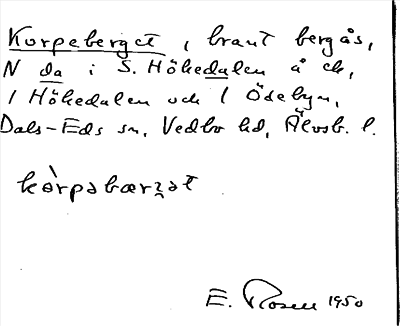 Korpeberget, brant bergås,
N da i S. Hökedalen å ek,
1 Hökedalen och 1 Ödebyn,
Dals-Eds sn, Vedbo hd, Älvsb. l.
kòrpəbærʒət
E. Rosell 1950